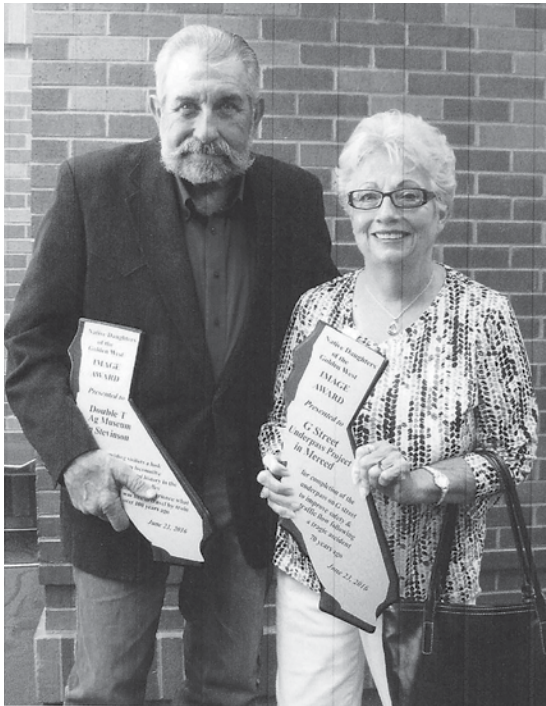 Native Daughters
of the
Golden West
IMAGE
AWARD
Presented to
Double T
Ag Museum
Stevinson
visitors a
history in the
what
by train
100 years ago
June 23, 2016
Native Daughters
of the
Golden West
IMAGE
AWARD
Presented to
G Street
Underpass Project
in Merced
for completion of the
underpass on G street
to improve safety &
traffic flow following
a tragic accident
70 years ago
June 23, 2016